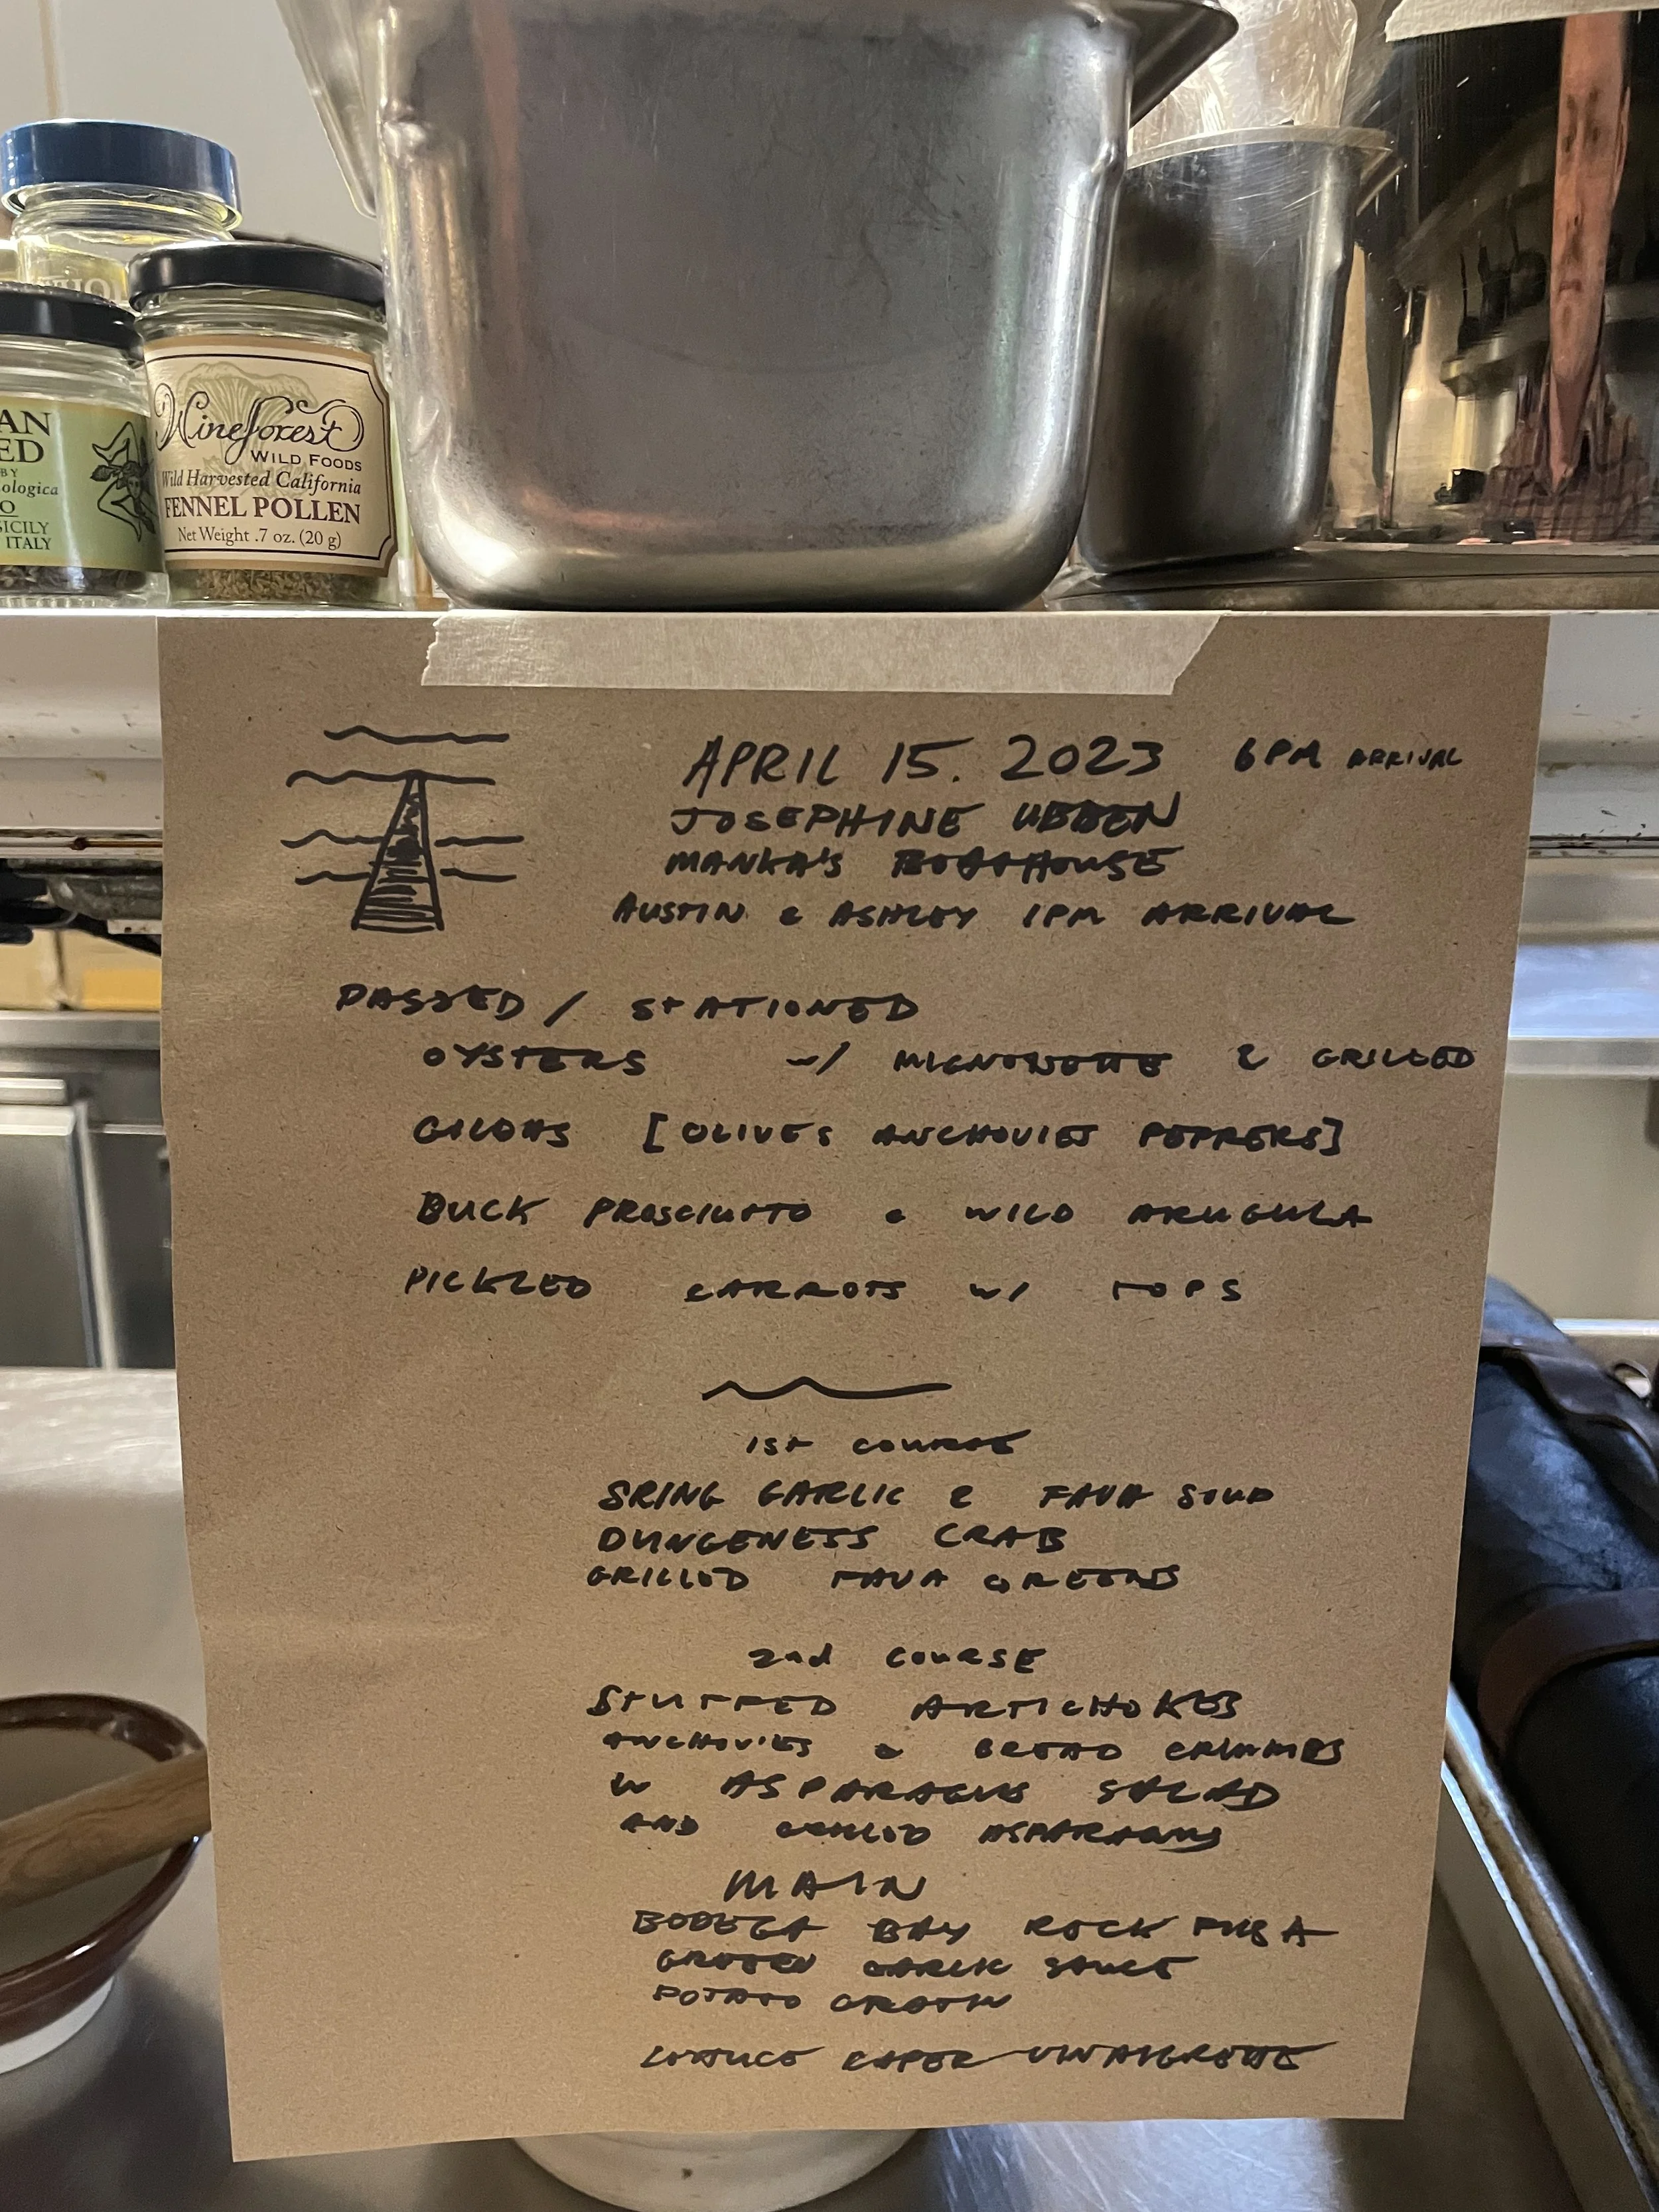 AN
ED
BY
ologica
O
SICILY
ITALY
Wineforest
WILD FOODS
Wild Harvested California
FENNEL POLLEN
Net Weight .7 oz. (20 g)
APRIL 15. 2023 6PM ARRIVAL
JOSEPHINE UBBEN
MANKA'S BOATHOUSE
AUSTIN & ASHLEY 1PM ARRIVAL
PASSED / STATIONED
OYSTERS w/ MIGNONETTE & GRILLED
GILDAS [OLIVES ANCHOVIES PEPPERS]
BUCK PROSCIUTTO & WILD ARUGULA
PICKLED CARROTS w/ TOPS
1st COURSE
SRING GARLIC & FAVA SOUP
DUNGENESS CRAB
GRILLED FAVA GREENS
2nd COURSE
STUFFED ARTICHOKES
ANCHOVIES & BREAD CRUMMBS
W ASPARAGUS SALAD
AND GRILLED ASPARAGUS
MAIN
BODEGA BAY ROCK
GREEN GARLIC SAUCE
POTATO GRATIN
LETTUCE CAPER VINAIGRETTE